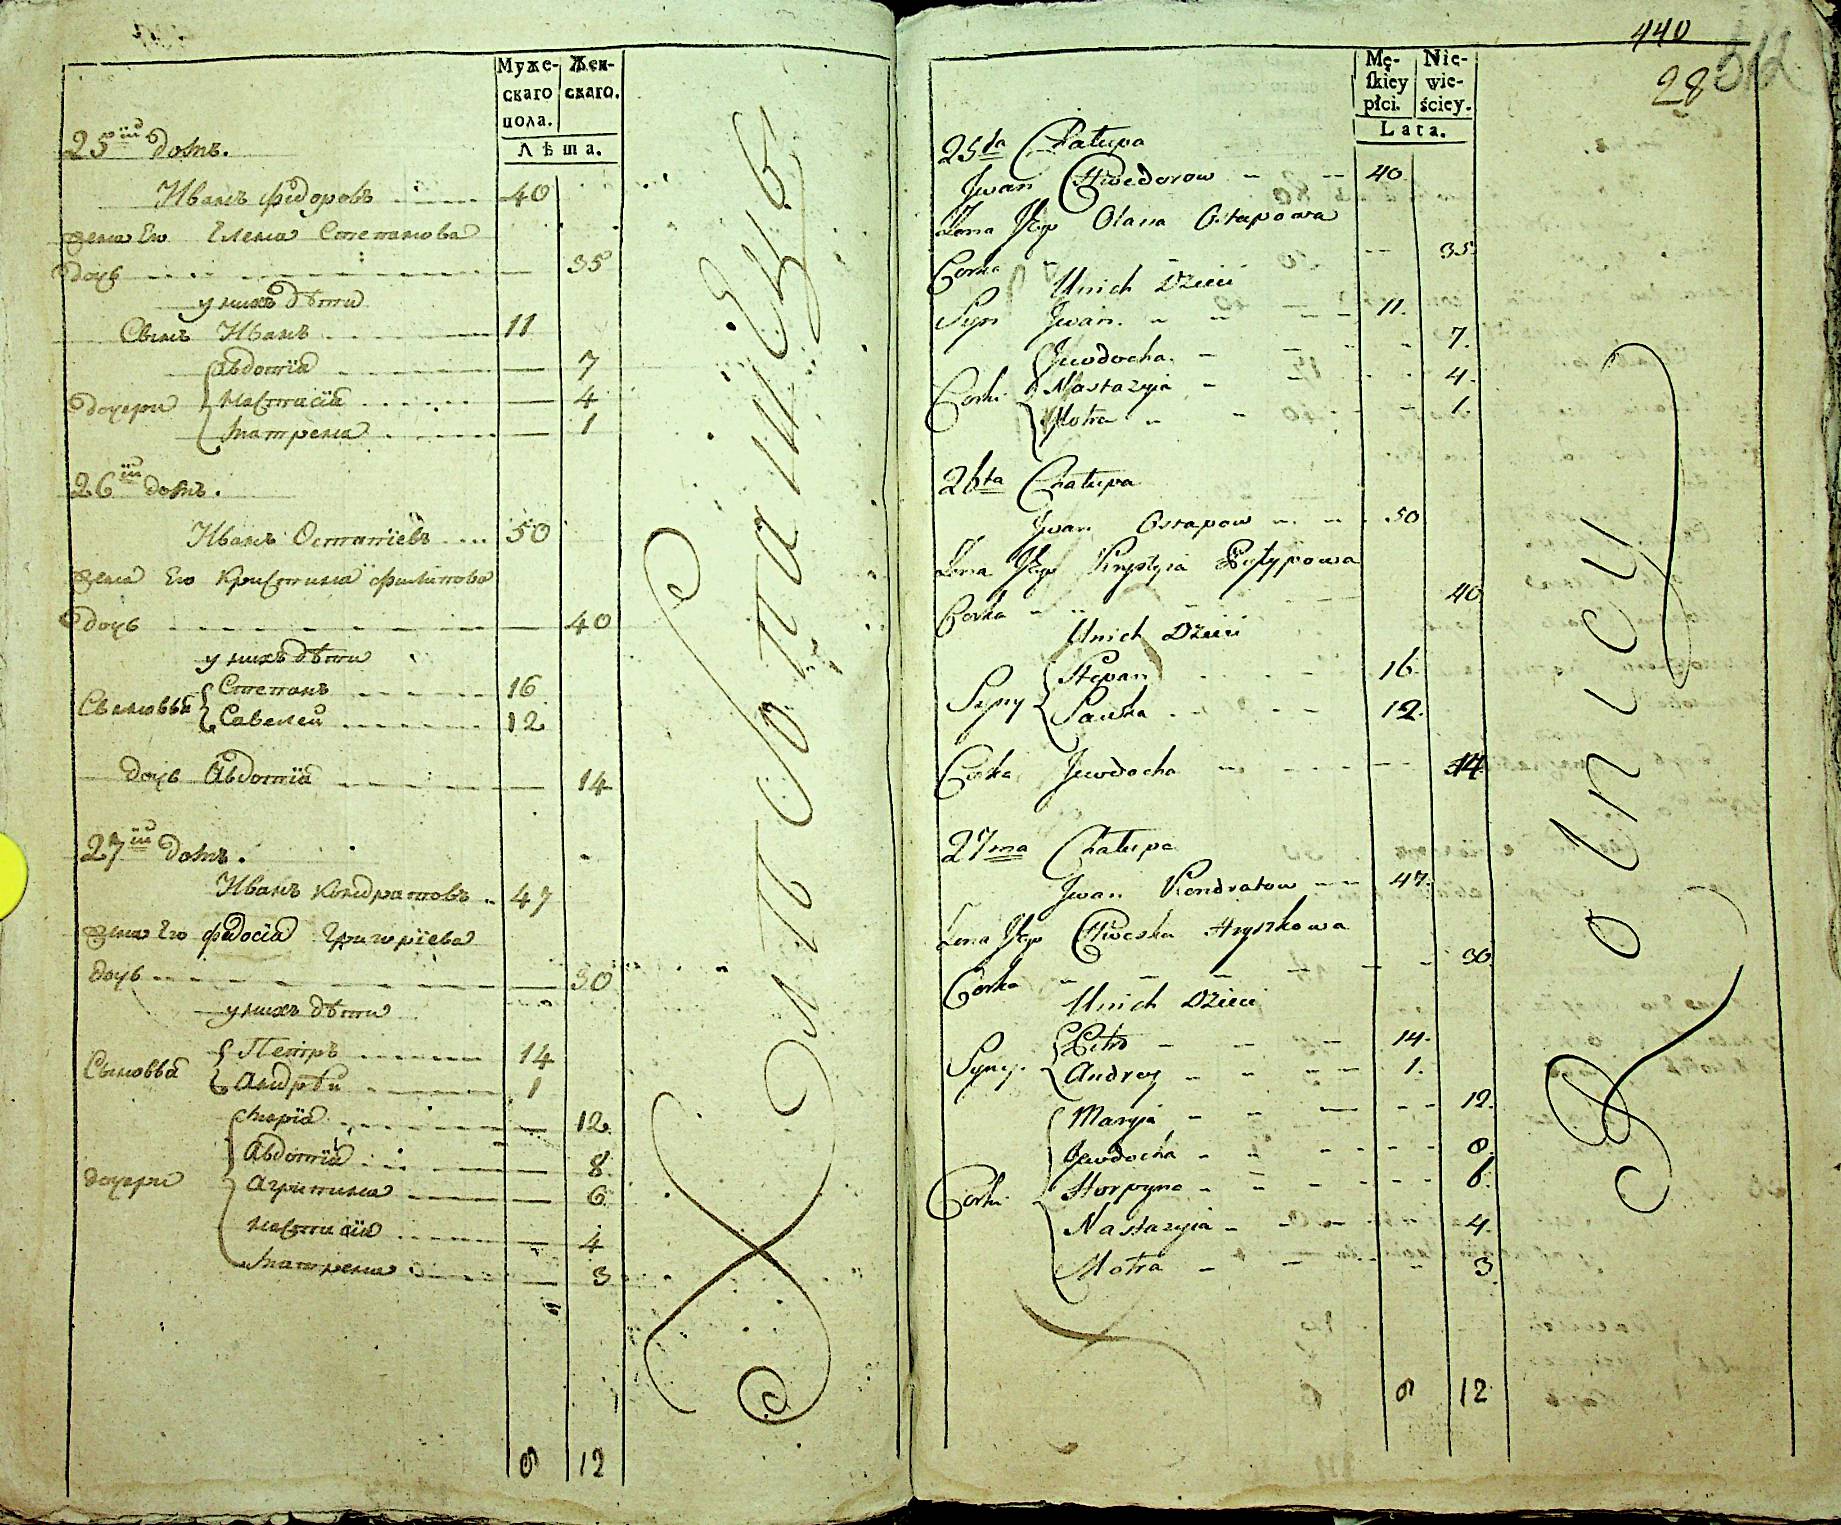 Муже-
скаго
пола.
Жен-
скаго.
Лѣта.
25й домъ.
Иванъ Фѣдоровъ 40
жена Его Елена Степанова
дочь 35
у нихъ дѣти
Сынъ Иванъ 11
дочери Авдотïя 7
Настасïя 4
Матрена 1
26й домъ.
Иванъ Остапïевъ 50
жена Его Кристина Филипова
дочь 40
у нихъ дѣти
Сыновья Степанъ 16
Савелей 12
дочь Авдотïя 14
27й домъ.
Иванъ Кондратовъ 47
жена Его Фѣдосïя Григорïева
дочь 30
у нихъ дѣти
Сыновья Петръ 14
Андрѣй 1
дочери Марïя 12
Авдотïя 8
Агрипина 6
Настасïя 4
Матрена 3
6 12
440
28
512
Mę-
ſkiey
płci.
Nie-
wie-
ściey.
Lata.
25ta Chałupa
Jwan Chwedorow 40
Zona Jego Olana Ostapowa
Corka 35
Unich Dzieci
Syn Jwan 11.
Corki Jewdocha 7.
Nastazyia 4.
Motra 1.
26ta Chałupa
Jwan Ostapow 50
Zona Jego Krystyia Pylypowa
Corka 40
Unich Dzieci
Syny Stepan 16.
Sawka 12.
Corka Jewdocha 14
27ma Chałupa
Jwan Kondratow 47.
Zona Jego Chweska Hryszkowa
Corka 30.
Unich Dzieci
Syny Petro 14.
Andrey 1.
Corki Maryia 12.
Jewdocha 8.
Horpyna 6.
Nastazyia 4.
Motra 3.
6 12